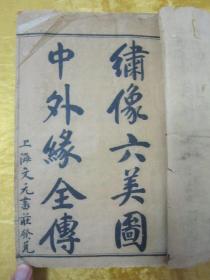 繡像六美圖
中外緣全傳
上海文元書莊發兌